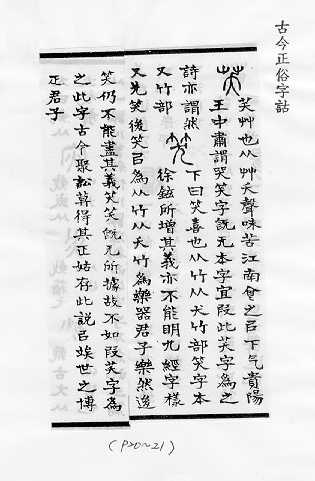 古今正俗字詁
芺 芺艸也从艸夭聲味苦江南食之㠯下气貴陽
王中肅謂哭笑字旣无本字宜叚此芺字為之
詩亦謂然 笑 下曰笑喜也从竹从犬竹部笑字本
又竹部 徐鉉所增其義亦不能明九經字樣
又先笑後笑㠯為从竹从夭竹為樂器君子樂然後
笑仍不能盡其義芺笑旣无所據故不如叚芺字為
之此字古今聚訟莫得其正姑存此説㠯竢世之博
疋君子
(P20~21)